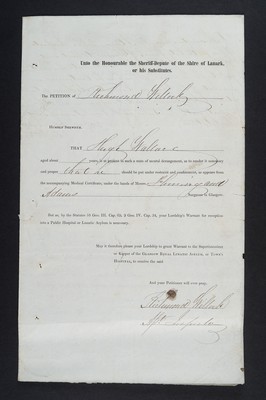 Unto the Honourable the Sheriff-Depute of the Shire of Lanark,
or his Substitutes.
The PETITION of Richmond
HUMBLY SHEWETH
THAT Hugh Wallace
aged about years, is at present in such a state of mental derangement, as to render it necessary
and proper that he should be put under restraint and confinement, as appears from
the accompanying Medical Certificate, under the hands of Messrs Fleming and
Adams Surgeons in Glasgow.
But as, by the Statutes 55 Geo. III. Cap. 69, 4 Geo. IV. Cap. 24, your Lordship's Warrant for reception
into a Public Hospital or Lunatic Asylum is necessary.
May it therefore please your Lordship to grant Warrant to the Superintendents
or Keeper of the GLASGOW ROYAL LUNATIC ASYLUM, or TOWN'S
HOSPITAL, to receive the said
And your Petitioner will ever pray,
Richmond
Inspector